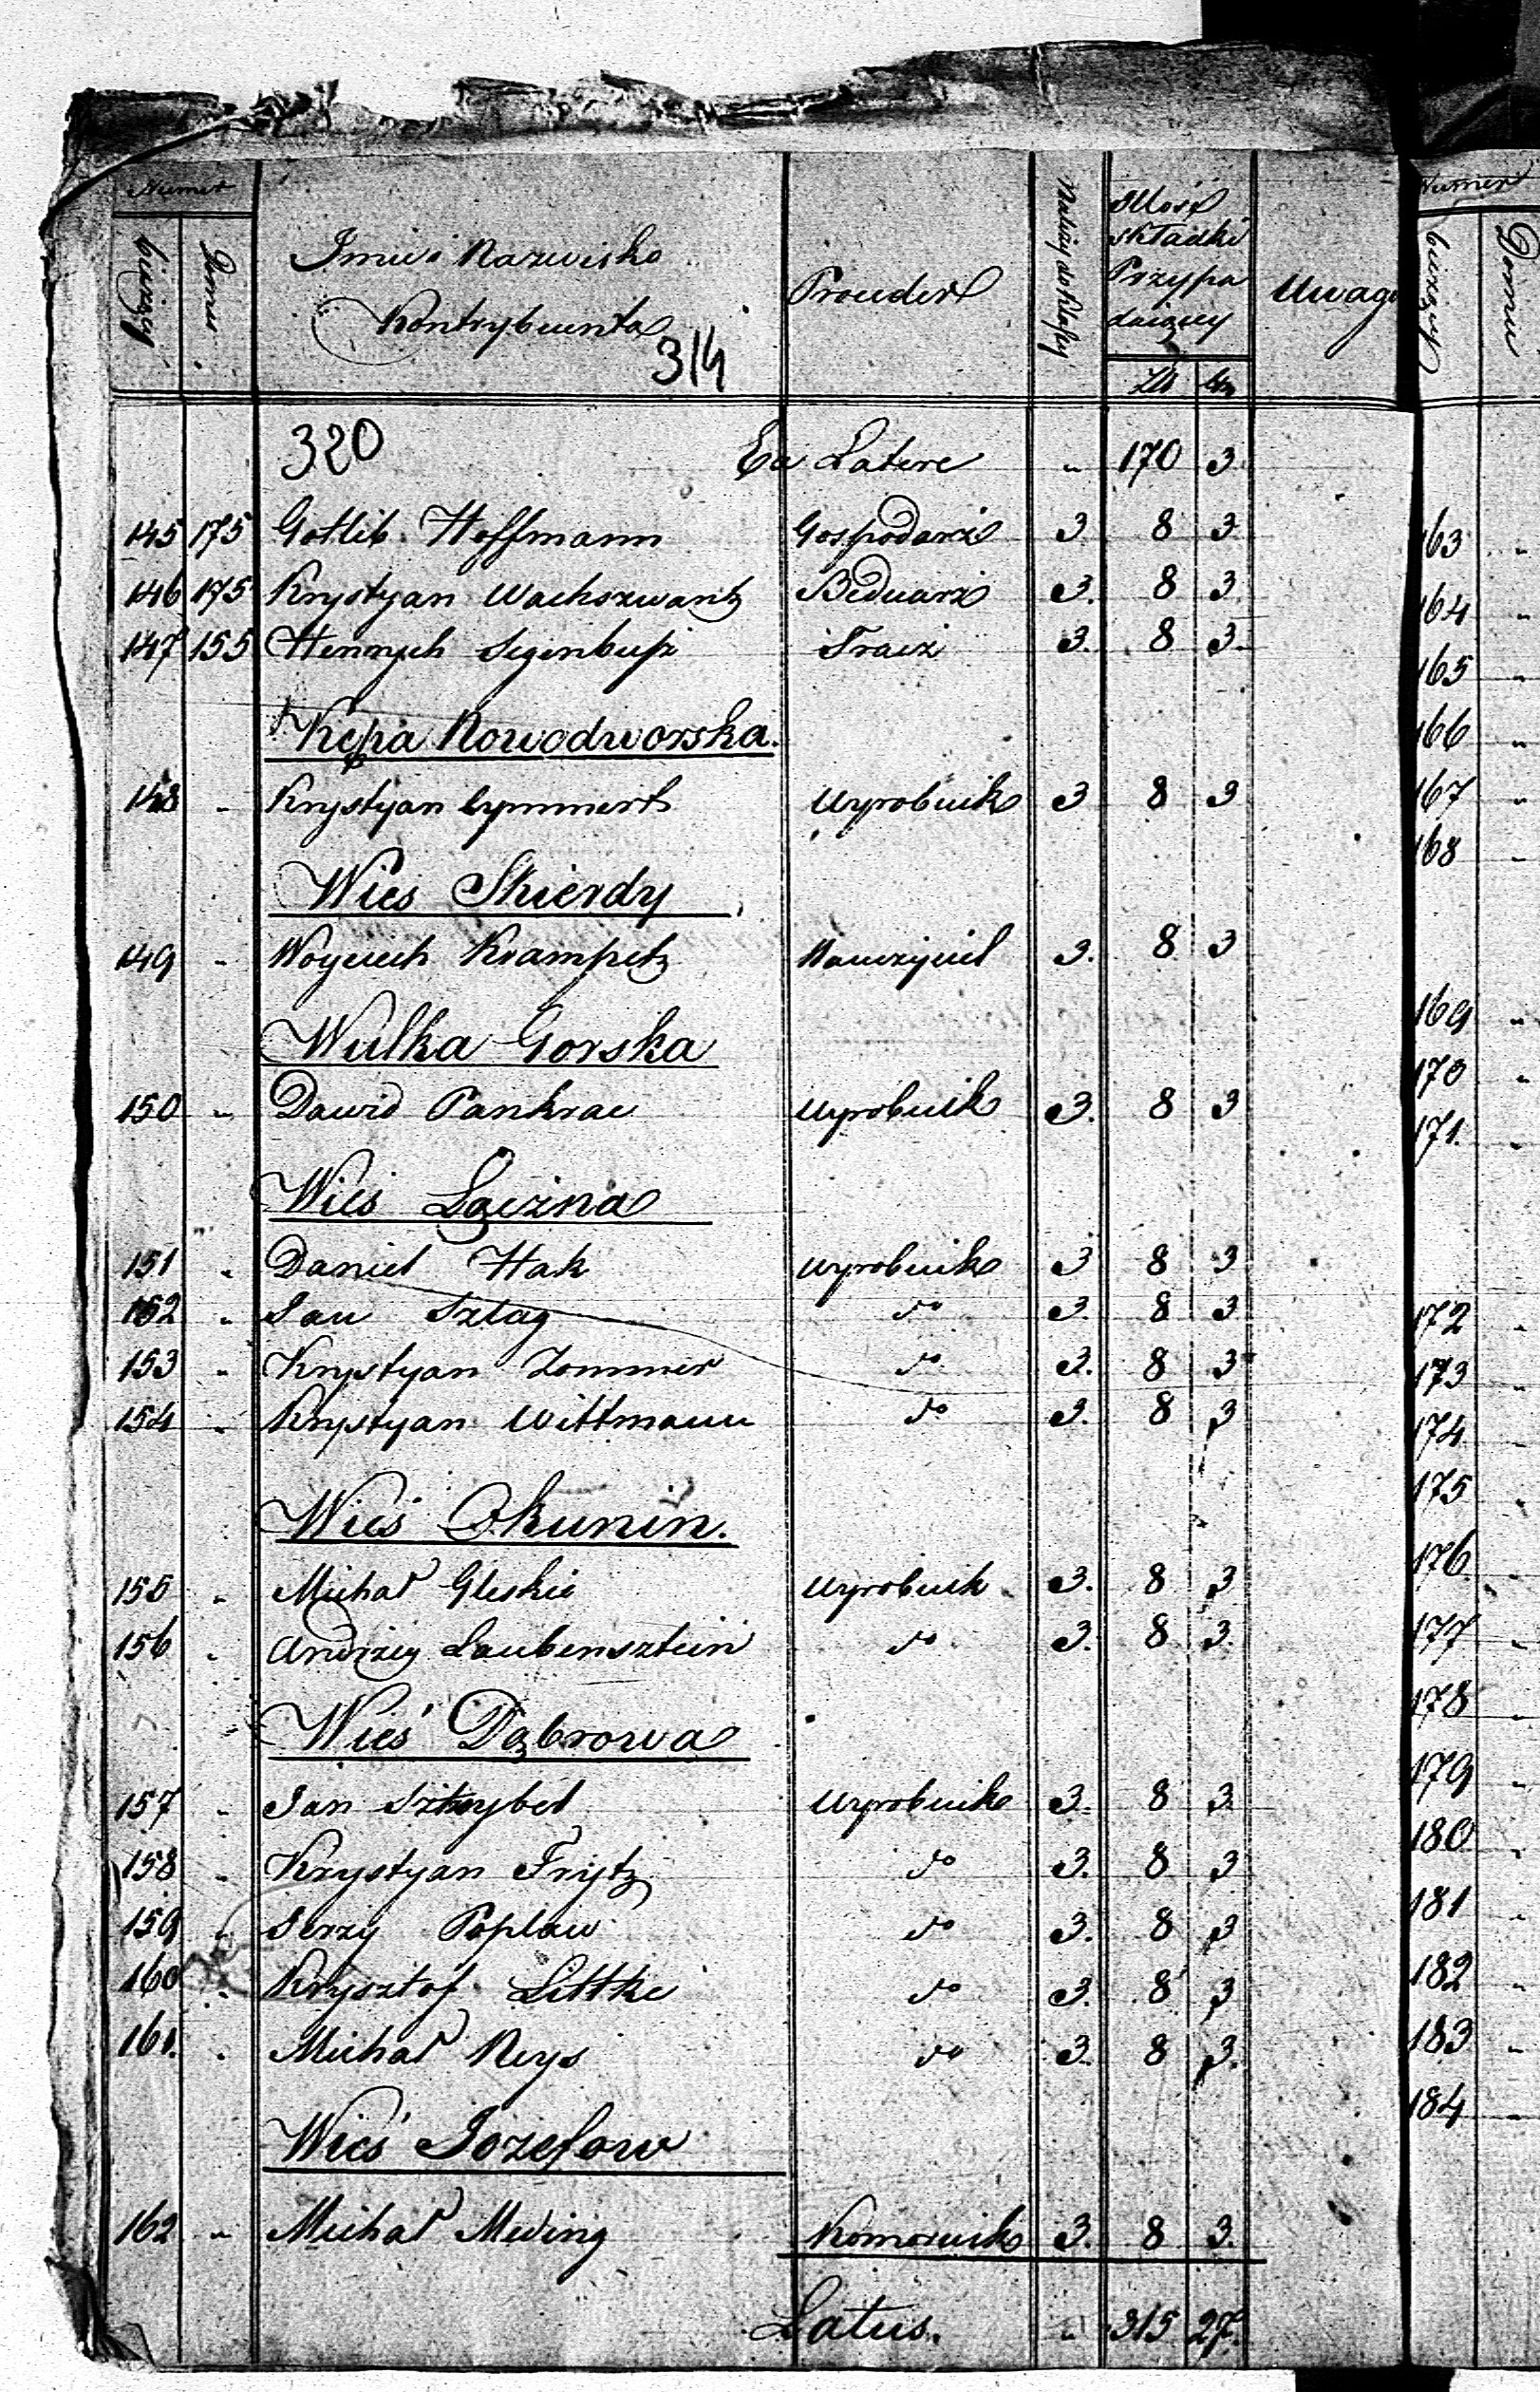 Numer
bieżący Domu Imie i Nazwisko Kontrybuenta Proceder Należy do klassy Ilość składki Przypadaiącey Uwaga
Zł gr
314
320
Ex Latere " 170 3
145 175 Gotlib Hoffmann Gospodarz 3 8 3
146 175 Krystyan Wachszwantz Bednarz 3. 8 3
147 155 Hennrych Tracz 3. 8 3.
Kępa Nowodworska.
148 " Krystyan Cymmert Wyrobnik 3 8 3
Wies Skierdy
149 " Woyciech Krampetz Nauczyciel 3. 8 3
Wulka Gorska
150 " Dawid Pankrac Wyrobnik 3. 8 3
Wieś Łączna
151 " Daniel Hak Wyrobnik 3 8 3
152 " Jan Szlag do 3. 8 3
153 " Krystyan Zommer do 3. 8 3
154 " Krystyan Wittmann do 3. 8 3
Wieś Okunin.
155 " Michał Gleske Wyrobnik 3. 8 3
156 " Andrzey Laubensztein do 3. 8 3.
Wieś Dąbrowa
157 " Jan Wyrobnik 3. 8 3.
158 " Krystyan Frytz do 3. 8 3
159 " Jerzy Poplaw do 3. 8 3
160 " Krysztof Littke do 3. 8 3
161. " Michał Reys do 3. 8 3.
Wieś Jozefow
162 " Michał Meding Komornik 3. 8 3.
Latus. " 315 27.
Numer
bieżący Domu
163 "
164 "
165 "
166 "
167 "
168 "
169 "
170 "
171. "
172 "
173 "
174 "
175 "
176 "
177 "
178 "
179 "
180 "
181 "
182 "
183 "
184 "